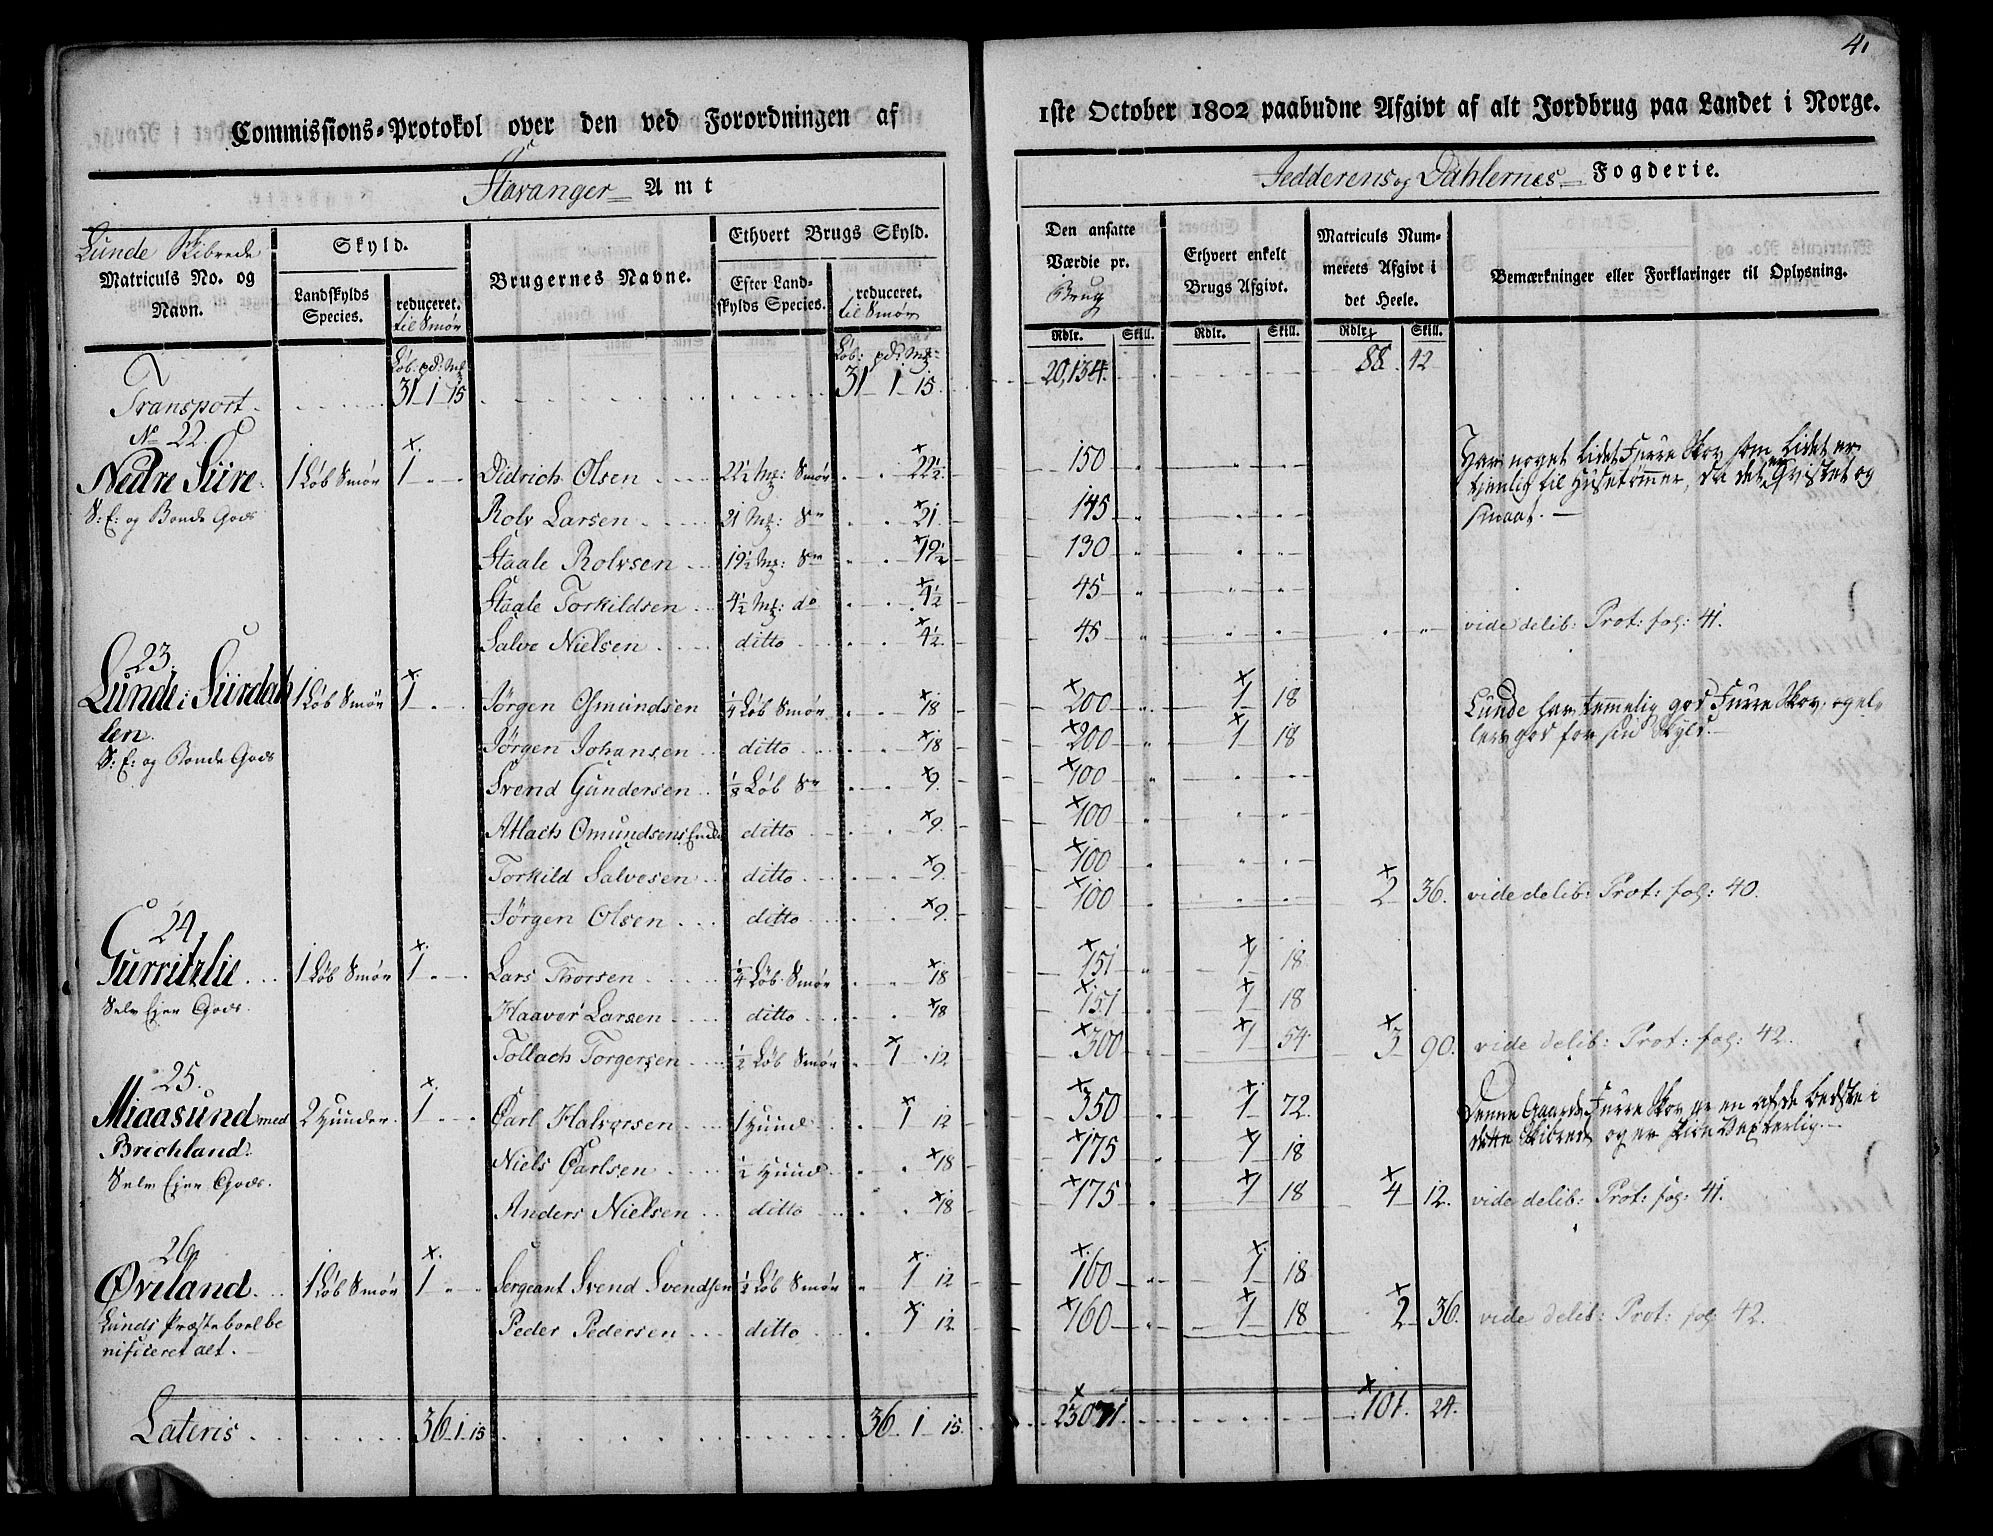 4,
Commissions-Protokol over den ved Forordningen af
1ste October 1802 paabudne Afgivt af alt Jordbrug paa Landet i Norge.
Stavanger Amt
Jedderens og Dahlernes Fogderie.
Lunde Skibrede
Matriculs No. og Navn.
Skyld.
Landskylds Species.
reduceret. til Smør
Brugernes Navne.
Ethvert Brugs Skyld.
Efter Landskylds Species.
reduceret. til Smør
Den ansatte Værdie pr. Brug
Ethvert enkelt Brugs Afgivt.
Matriculs Nummerets Afgivt i det Heele.
Bemærkninger eller Forklaringer til Oplysning.
Rdlr. Skill. Rdlr. Skill. Rdlr. Skill.
Løb: pd: Mz Løb: pd: Mz
Transport 31 1 15 31 1 15 20,134. 88. 12
No 22.
Nedre Siire. 1 Løb Smør 1 Didrich Olsen 22½ Mz: Smør 22½ 150 Har noget lidet Furre Skov som lidet er
S: E: og Bonde Gods Rolv Larsen 21 Mz: Sm 21 145 tjenlig til Husetømmer, da det er Qvistet og
smaat. —
Staale Rolvsen 19½ Mz: Sm 19½ 130
Staale Torkildsen 4½ Mz: do 4½ 45
Salve Nielsen ditto 4½ 45 vide delib: Prot: fol: 41.
23.
Lunde i Siirdahlen. 1 Løb Smør 1 Jørgen Osmundsen ¼ Løb Smør 18 200 1 18 Lunde har temmelig god Furre Skov, og el-
S: E: og Bonde Gods Jørgen Johansen ditto 18 200 1 18 lers god for sin Skyld. —
Svend Gundersen ⅛ Løb Sm 9 100
Atlach Omundsens Enke ditto 9. 100
Torkild Salvesen ditto 9. 100
Jørgen Olsen ditto 9. 100 2 36. vide delib: Prot: fol: 40.
24.
Gurritzlie 1 Løb Smør 1 Lars Thorsen ¼ Løb Smør 18 151 1 18
Selv Ejer Gods. Haavor Larsen ditto 18 151 1 18
Tollach Torgersen ½ Løb Smør 1 12 300 1 54 3 90. vide delib: Prot: fol: 42.
25.
Miaasund med 2 Huuder. 1 Carl Halvorsen 1 Huud 1 12 350 1 72. Denne Gaards Furre Skov er en af de bedste i
Brechland. Niels Carlsen ½ Huud 18 175 1 18 dette Skibrede og er
Selv Ejer Gods. Anders Nielsen ditto 18 175 1 18 4 12. vide delib: Prot: fol: 41.
26.
Øvsland 1 Løb Smør 1 Sergeant Svend Svendsen ½ Løb Smør 1 12 160 1 18
Lunds Præsteboel be Peder Pedersen ditto 1 12 160 1 18 2 36. vide delib: Prot: fol: 42.
nificeret alt.
Lateris 36 1 15 36 1 15. 23071. 101. 24.